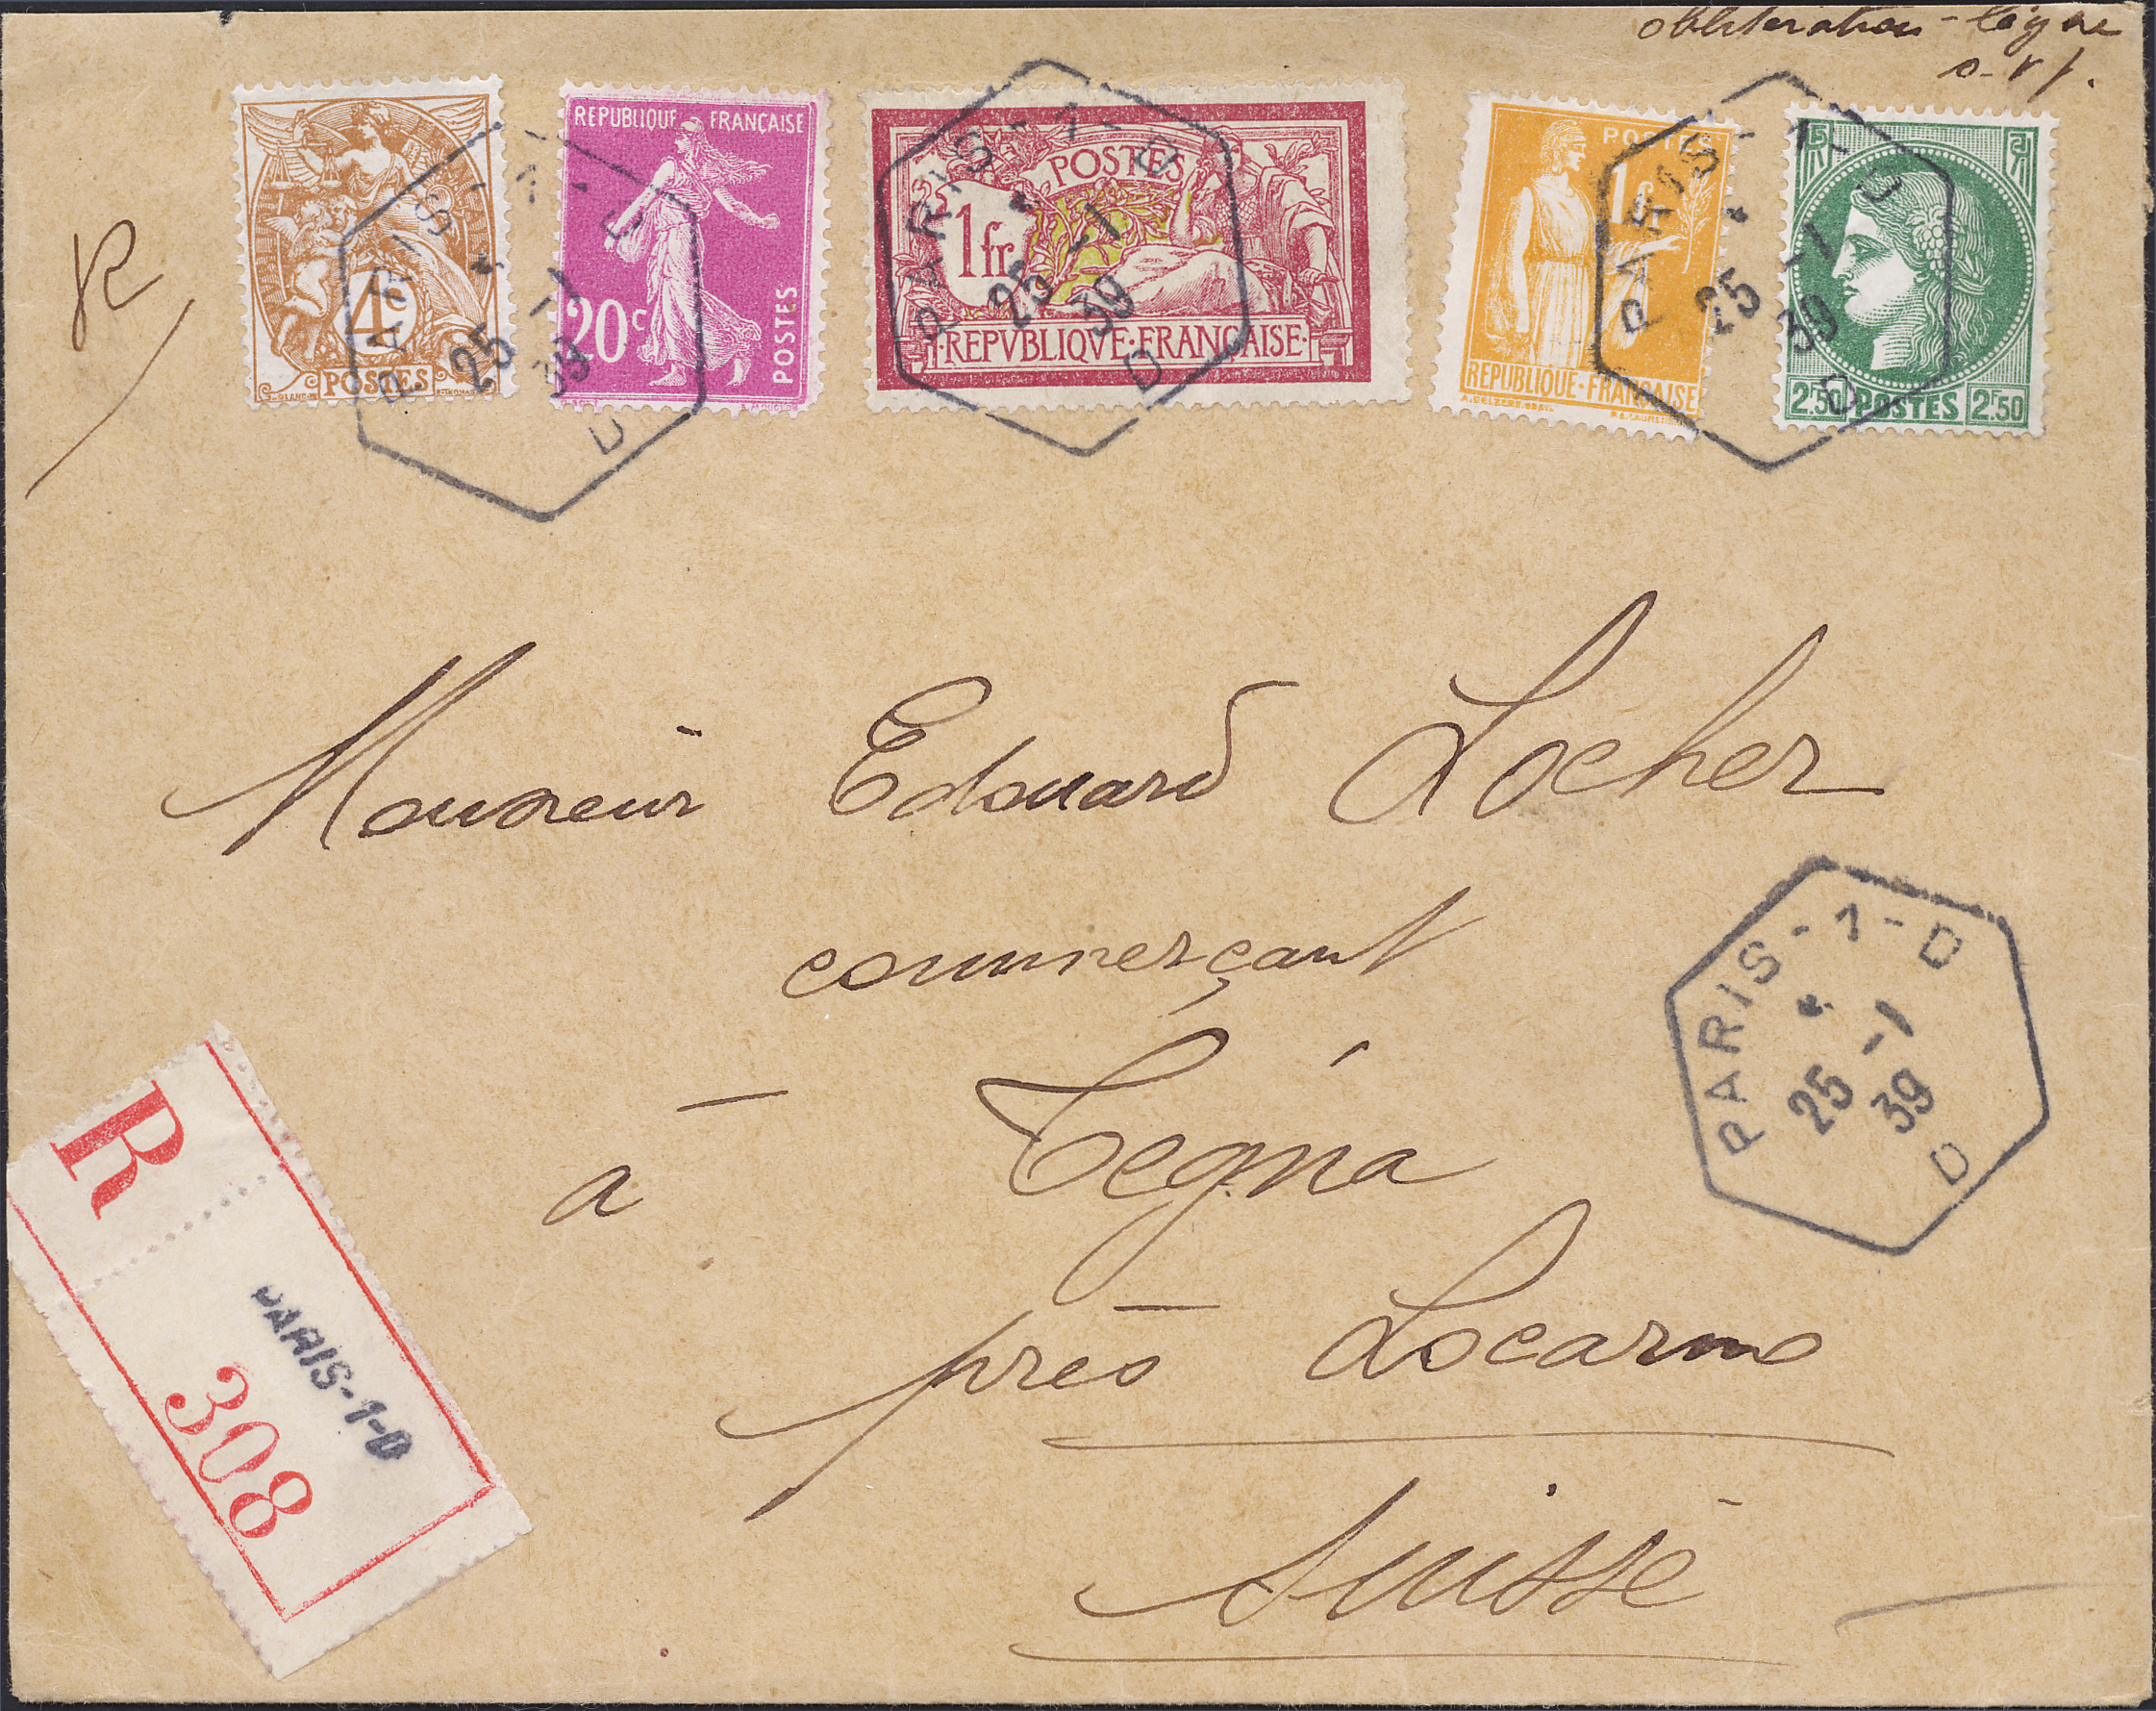 obliteration - légère
s.v.p.
R
4c
POSTES
REPUBLIQUE FRANÇAISE
20c
POSTES
POSTES
1fr
REPVBLIQVE·FRANÇAISE
POSTES
1fr
REPUBLIQUE·FRANÇAISE
2F50 POSTES 2F50
PARIS-1-D
25 -1
39
D
PARIS-1-D
25 -1
39
D
PARIS-1-D
25 -1
39
D
Monsieur Edouard Locher
commerçant
à Tegna
près Locarno
Suisse
PARIS-1-D
25 -1
39
D
R
PARIS-1-D
308